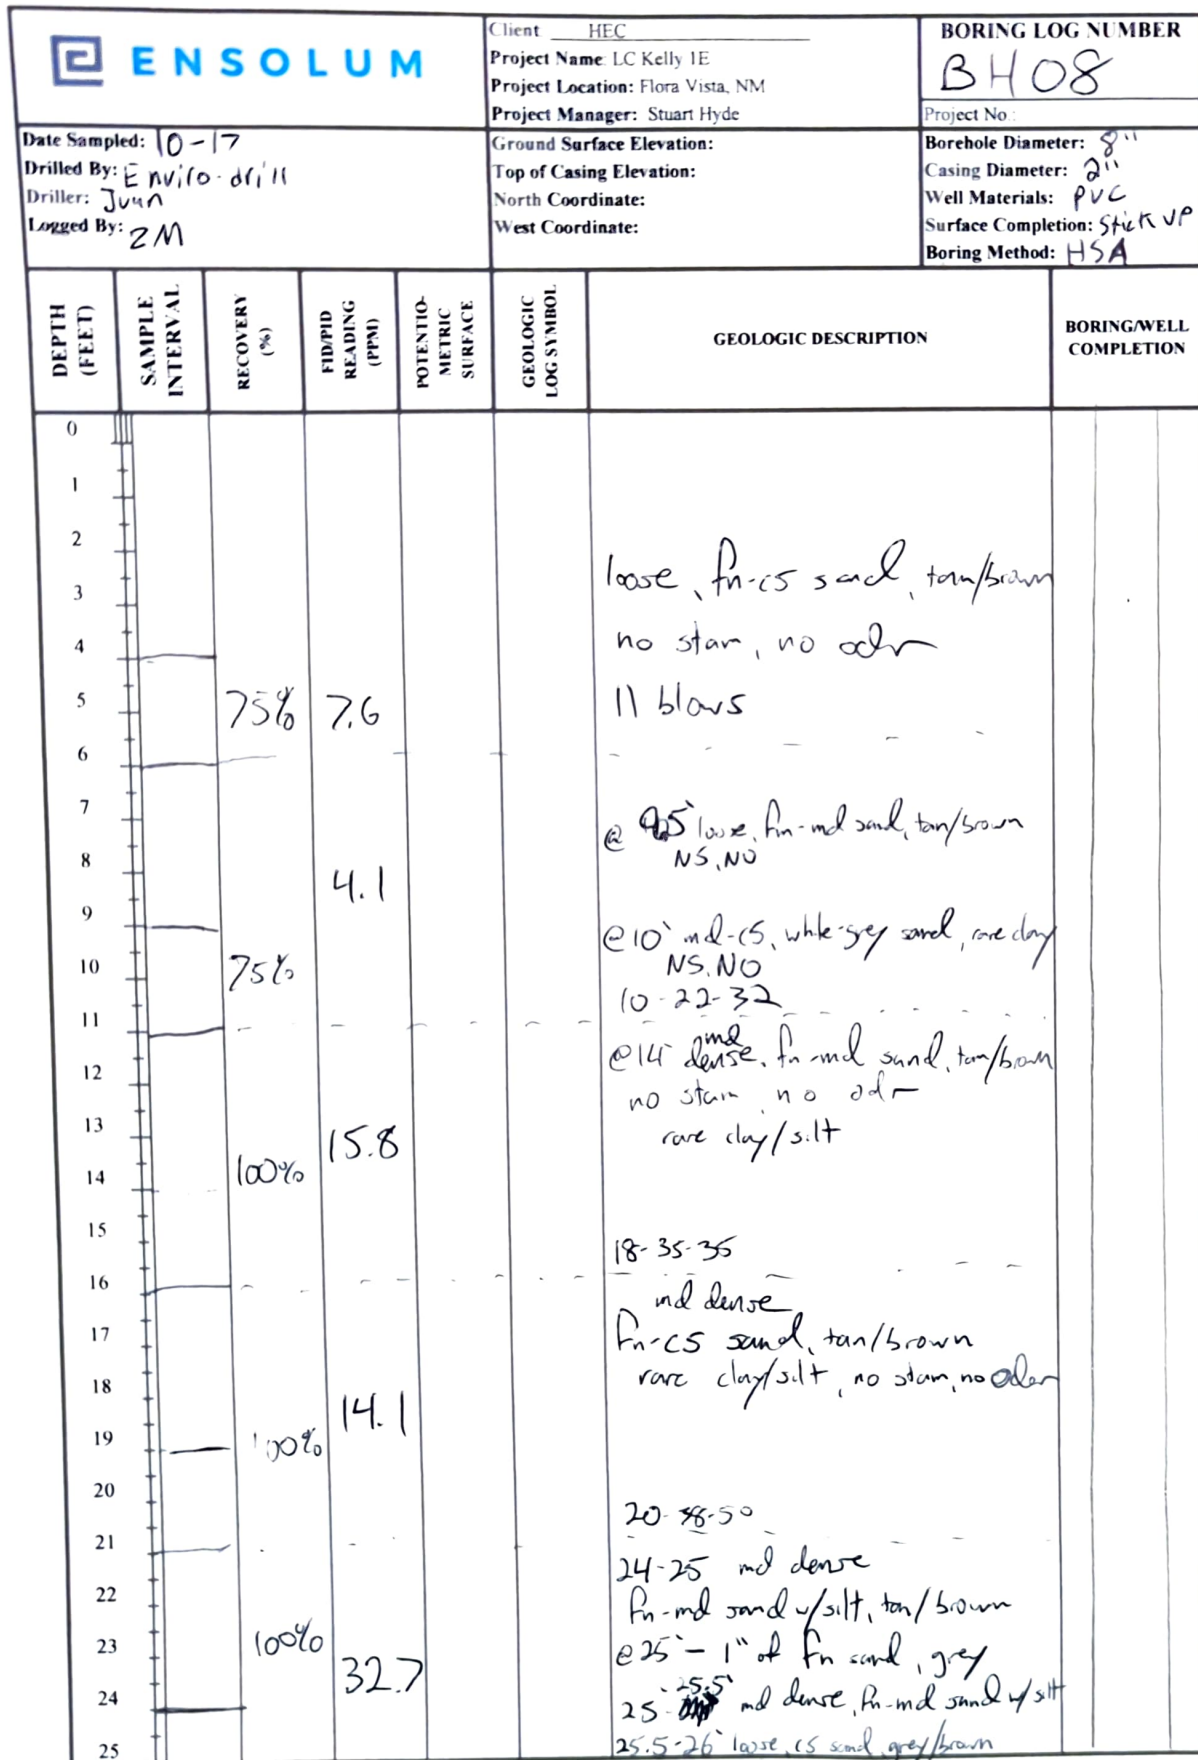 ENSOLUM
Client HEC
Project Name: LC Kelly 1E
Project Location: Flora Vista, NM
Project Manager: Stuart Hyde
BORING LOG NUMBER
BH08
Project No.:
Date Sampled: 10-17
Drilled By: Enviro-drill
Driller: Juan
Logged By: ZM
Ground Surface Elevation:
Top of Casing Elevation:
North Coordinate:
West Coordinate:
Borehole Diameter: 8"
Casing Diameter: 2"
Well Materials: PVC
Surface Completion: Stick UP
Boring Method: HSA
DEPTH (FEET)
SAMPLE INTERVAL
RECOVERY (%)
FID/PID READING (PPM)
POTENTIO-METRIC SURFACE
GEOLOGIC LOG SYMBOL
GEOLOGIC DESCRIPTION
BORING/WELL COMPLETION
0
1
2
3 loose, fn-cs sand, tan/brown
4 no stain, no odor
5 75% 7.6 11 blows
6
7
@ loose, fn-md sand, tan/brown
8 NS, NO
4.1
9
@10' md-cs, white-grey sand, rare clay
10 75% NS, NO
10-22-32
11
md
@14' dense, fn-md sand, tan/brown
12 no stain no odor
13 15.8 rare clay/silt
14 100%
15
18-35-35
16
md dense
17 fn-cs sand, tan/brown
18 rare clay/silt, no stain, no odor
14.1
19 100%
20
20-38-50
21
24-25 md dense
22 fn-md sand w/silt, tan/brown
23 100% @25' - 1" of fn sand, grey
32.7
24 25'-25.5' md dense, fn-md sand w/ silt
25 25.5-26' loose, cs sand, grey/brown